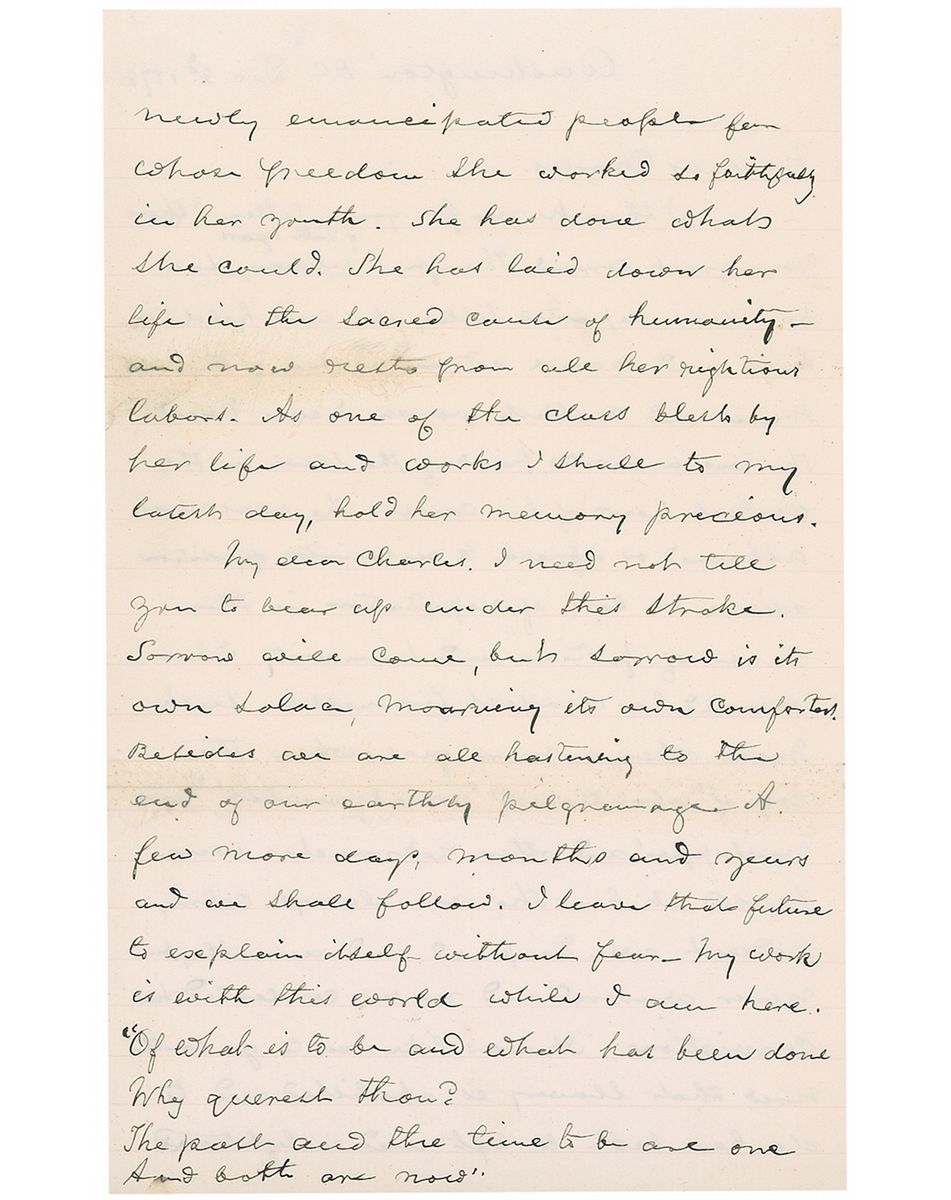 newly emancipated people for
whose freedom she worked so faithfully
in her youth. She has done what
she could. She has laid down her
life in the sacred cause of humanity –
and now rests from all her rightious
labors. As one of the class blest by
her life and works I shall to my
latest day, hold her memory precious.
My dear Charles. I need not tell
you to bear up under this stroke.
Sorrow will come, but sorrow is its
own solace, mourning its own comforter.
Besides we are all hastening to the
end of our earthly pilgrimage. A
few more days, months and years
and we shall follow. I leave that future
to explain itself without fear – My work
is with this world while I am here.
"Of what is to be and what has been done
Why querest thou?
The past and the time to be are one
And both are now".